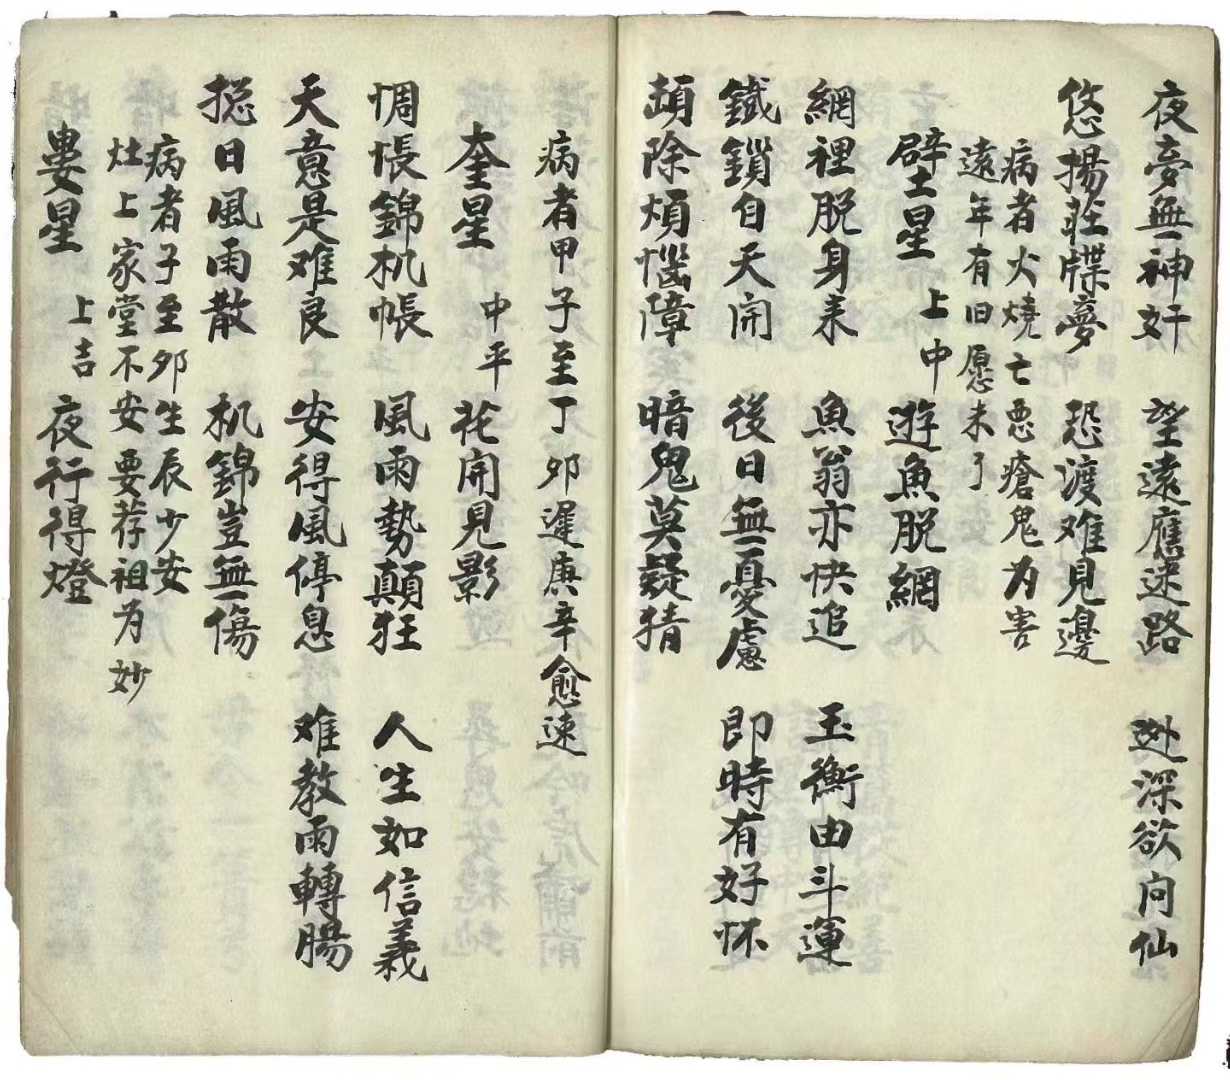 夜夢無神奸 望遠應迷路 迯深欲问仙
悠揚莊牒夢 恐渡难見邊
病者火燒亡悪瘡鬼为害
遠年有旧愿未了
壁星 上中 遊魚脱網
網裡脱身来 魚翁亦快追 玉衡由斗運
鐵鎖自天開 後日無憂慮 即時有好怀
頡除煩惱障 暗鬼莫疑猜
病者甲子至丁夘遲庚辛愈速
奎星 中平 花開見影
惆悵錦机帳 風雨勢顛狂 人生如信義
天意是难良 安得風停息 难教雨轉腸
摠日風雨散 机錦豈無傷
病者子至夘生辰少安
灶上家堂不安要荐祖为妙
婁星 上吉 夜行得燈